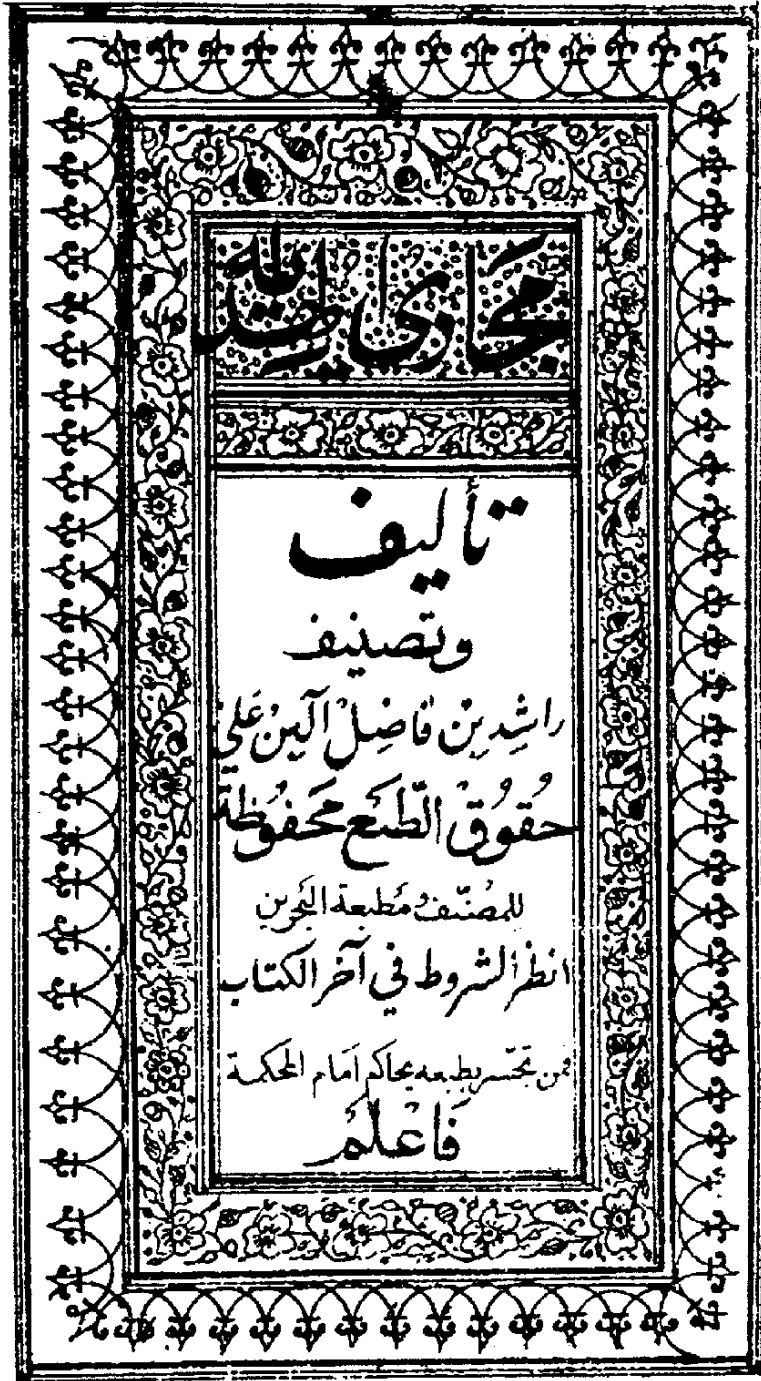 مجاري الهداية
تأليف
وتصنيف
راشِد بن فاضِلْ آلبِنْ عَلي
حُقُوُقْ الطَّبْع مَحفُوظَة
للمصنّف مَطبعة البَحرين
انظر الشروط في آخر الكتاب
فمن تجسّر بطبعه يحاكم امام المحكمة
فَاعْلَمْ